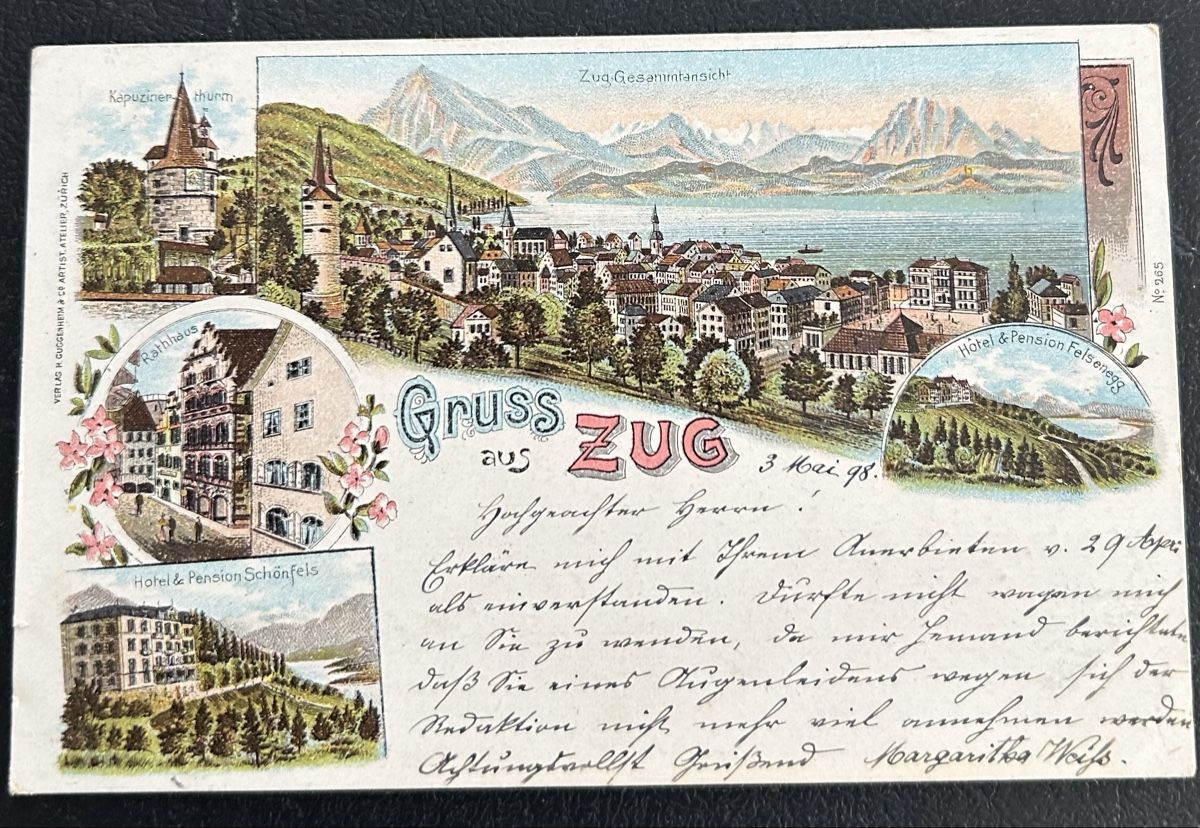 Kapuziner-thurm
Zug-Gesammtansicht
VERLAG H. GUGGENHEIM & Co ARTIST. ATELIER, ZÜRICH
No 265
Rathhaus
Hôtel & Pension Felsenegg
Gruss
aus ZUG
3 Mai 98.
Hotel & Pension Schönfels
Hochgeachter Herrn!
Erkläre mich mit Ihrem Anerbieten v. 29 Apri
als einverstanden. Durfte nicht wagen mich
an Sie zu wenden, da mir Jemand berichtete
daß Sie eines Augenleidens wegen sich der
Redaktion nicht mehr viel annehmen werden
Achtungsvollst Grüßend Margaritha Weiss.